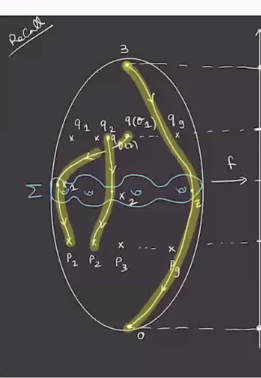 Recall
3
q1 q2 q(σ1) qg
f
Σ 1 2 2
P1 P2 P3 ... Pg
0